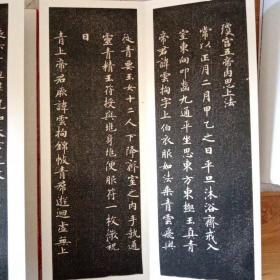 瓊宮五帝內思上法
常以正月二月甲乙之日平旦沐浴齋戒入
室東向叩齒九通平坐思東方東極玉真青
帝君諱雲拘字上伯衣服如法乘青雲飛輿
從青要玉女十二人下降齋室之內手執通
靈青精玉符授與兆身兆便服符一枚微祝
曰
青上帝君厥諱雲拘錦帔青帬遊迴虛無上